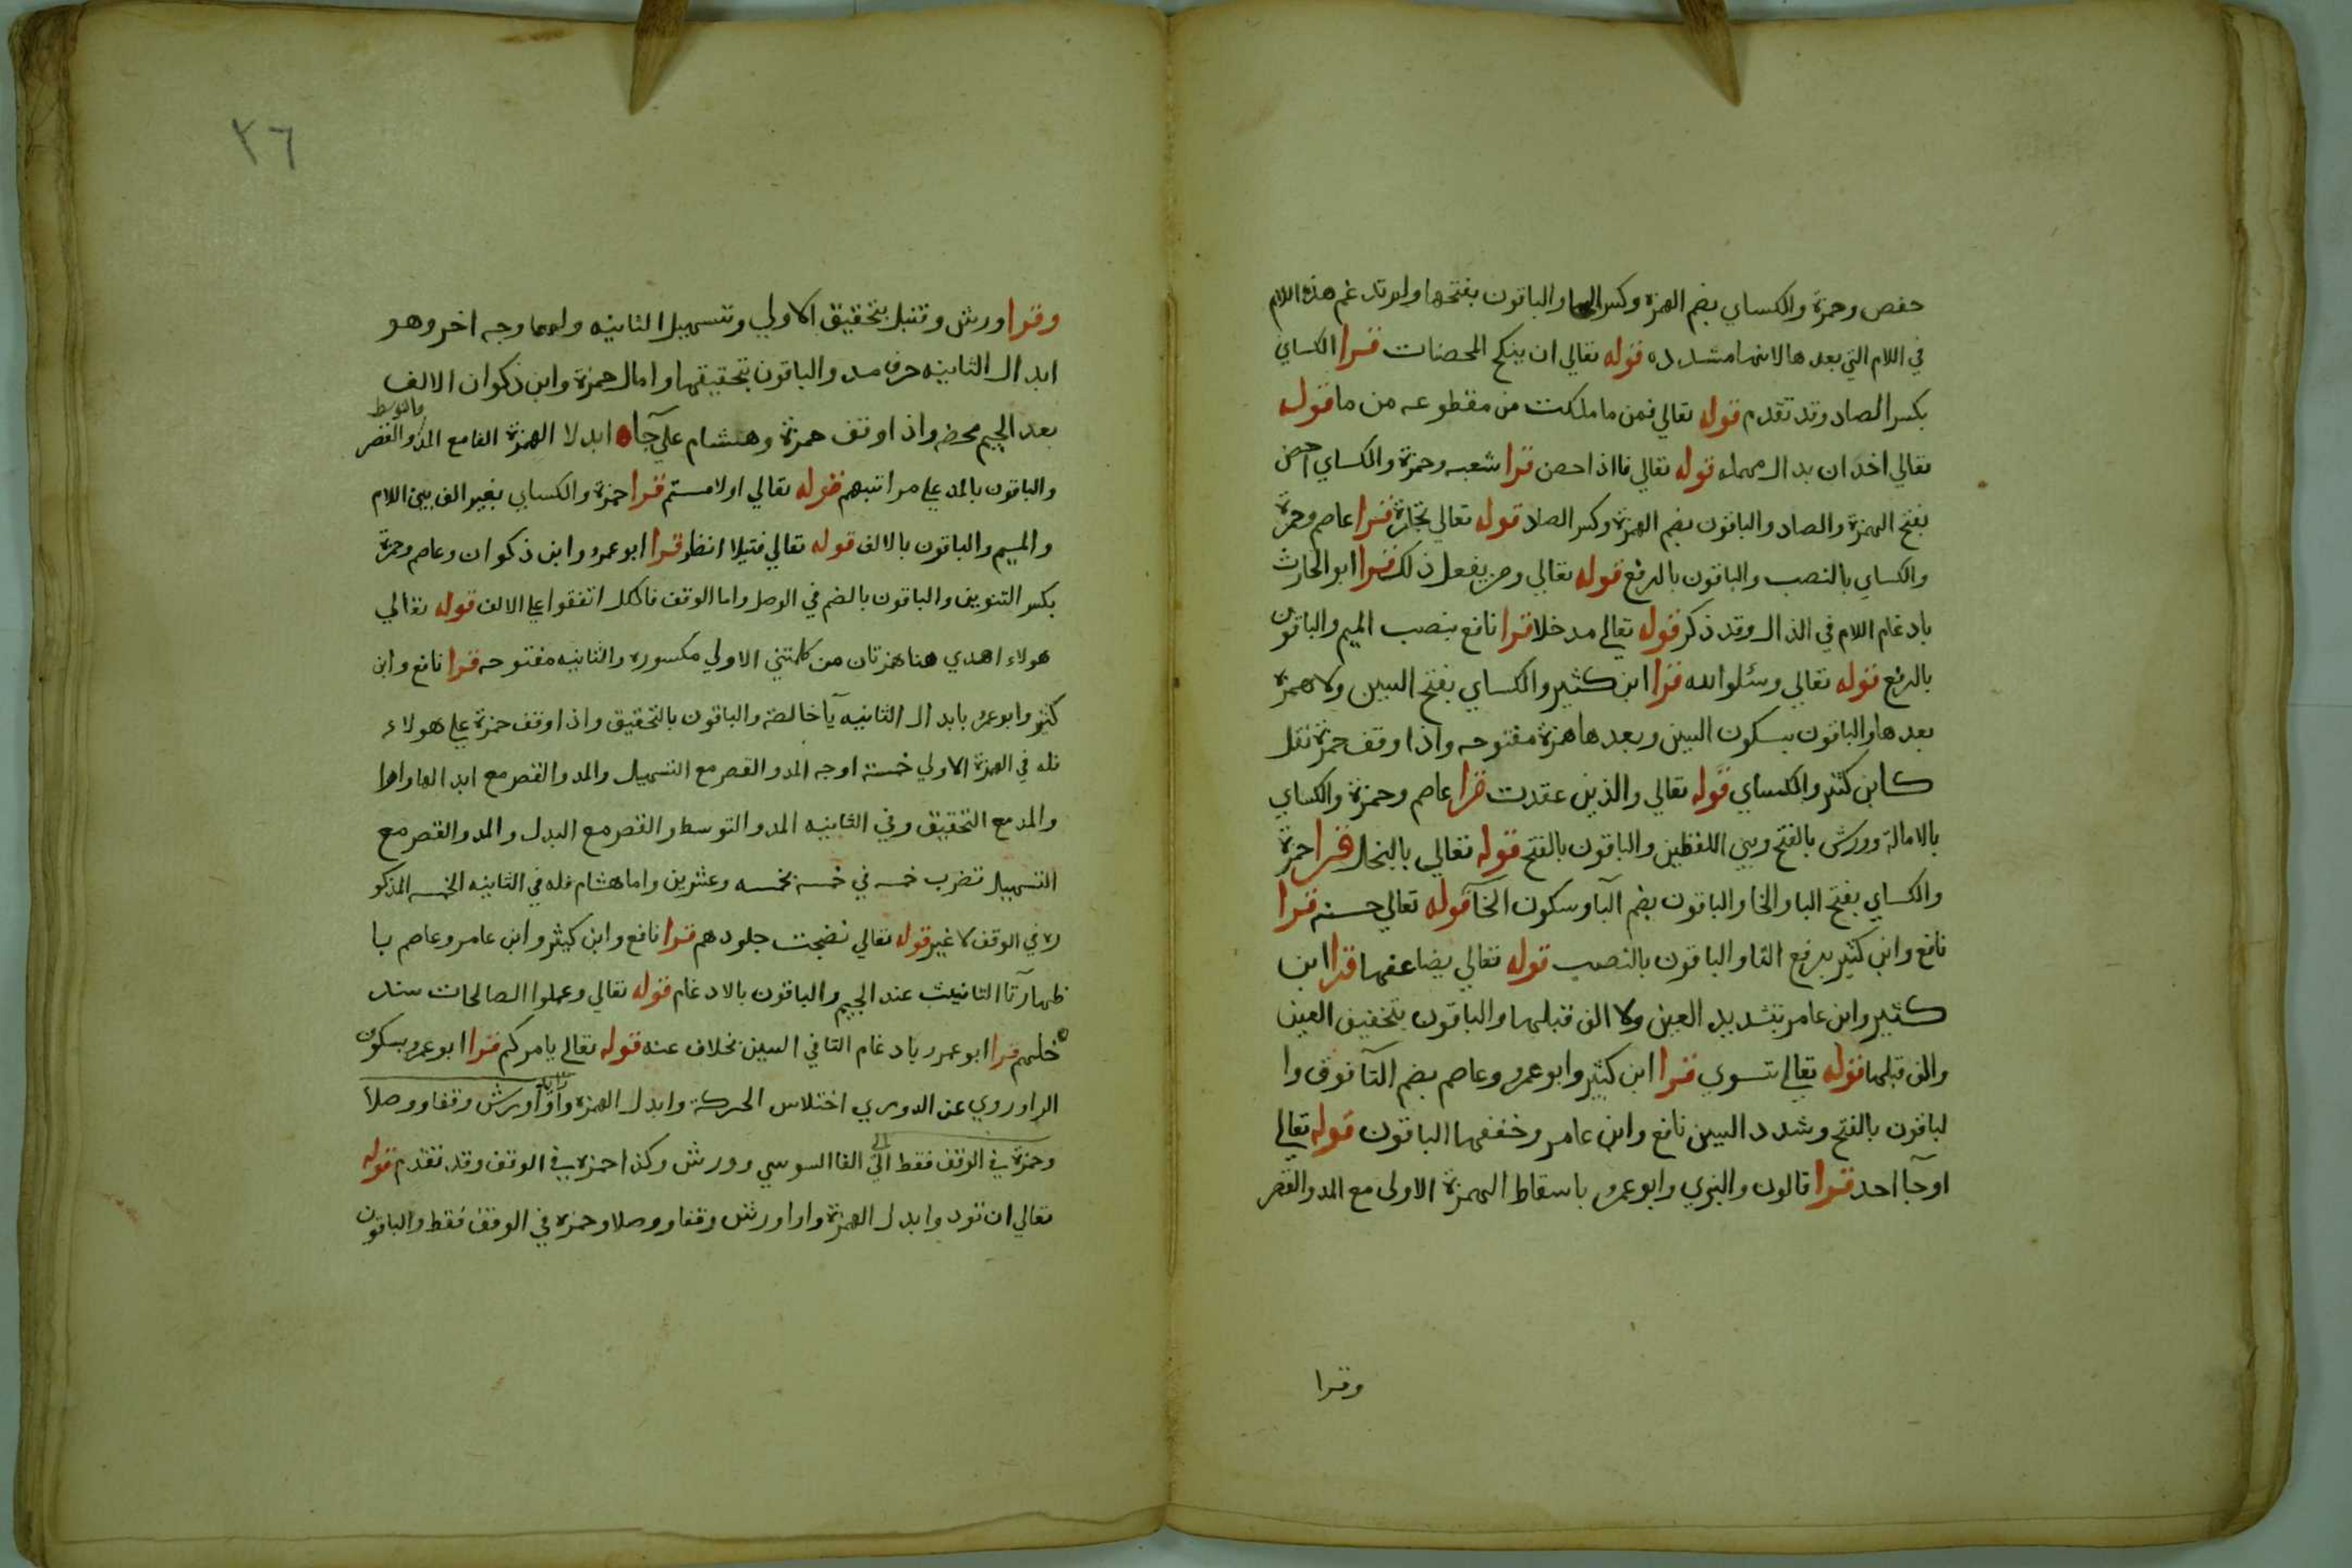 حفص وحمزة والكساي بضم الهمزة وكسر الحا والباقون بفتحها ولا تدغم هذه اللام
في اللام التي بعدها لانها مشدده قوله تعالي ان ينكح المحصنات قرا الكساي
بكسر الصاد وقد تقدم قوله تعالي فمن ما ملكت من مقطوعه من ما قوله
تعالي اخدان بدال مهمله قوله تعالي فاذا احصن قرا شعبه وحمزة والكساي احصن
بفتح الهمزة والصاد والباقون بضم الهمزة وكسر الصاد قوله تعالي تجارة قرا عاصم وحمزة
والكساي بالنصب والباقون بالرفع قوله تعالي ومن يفعل ذلك قرا ابو الحارث
بادغام اللام في الذال وقد ذكر قوله تعالي مدخلا قرا نافع بنصب الميم والباقون
بالرفع قوله تعالي وسئلوا الله قرا ابن كثير والكساي بفتح السين ولا همزة
بعدها والباقون بسكون السين وبعدها همزة مفتوحه واذا وقف حمزة نقل
كابن كثير والكساي قوله تعالي والذين عقدت قرا عاصم وحمزة والكساي
بالامالة وورش بالفتح وبين اللفظين والباقون بالفتح قوله تعالي بالبخل قرا حمزة
والكساي بفتح البا والخا والباقون بضم البآ وسكون الخآ قوله تعالي حسنه قرا
نافع وابن كثير برفع التا والباقون بالنصب قوله تعالي يضاعفها قرا ابن
كثير وابن عامر بتشديد العين ولا الف قبلها والباقون بتخفيف العين
والف قبلها قوله تعالي تسوي قرا ابن كثير وابو عمرو وعاصم بضم التآ فوق وا
لباقون بالفتح وشدد السين نافع وابن عامر وخففها الباقون قوله تعالي
اوجآ احد قرا قالون والبزي وابو عمرو باسقاط الهمزة الاولي مع المد والقصر
وقرا
٢٦
وقرا ورش وقنبل بتحقيق الاولي وتسهيل الثانيه ولهما وجه اخر وهو
ابدال الثانيه حرف مد والباقون بتحقيقها وامال حمزة وابن ذكوان الالف
بعد الجيم محضه واذا وقف حمزة وهشام علي جآ ابدلا الهمزة الفا مع المد والقصر والتوسط
والباقون بالمد علي مراتبهم قوله تعالي اولامستم قرا حمزة والكساي بغير الف بين اللام
والميم والباقون بالالف قوله تعالي فتيلا انظر قرا ابو عمرو وابن ذكوان وعاصم وحمزة
بكسر التنوين والباقون بالضم في الوصل واما الوقف فالكل اتفقوا علي الالف قوله تعالي
هولاء اهدي هنا همزتان من كلمتين الاولي مكسوره والثانيه مفتوحه قرا نافع وابن
كثير وابو عمرو بابدال الثانيه يآ خالصة والباقون بالتحقيق واذا وقف حمزة علي هولاء
فله في الهمزة الاولي خمسة اوجه المد والقصر مع التسهيل والمد والقصر مع ابدالها واوا
والمد مع التحقيق وفي الثانيه المد والتوسط والقصر مع البدل والمد والقصر مع
التسهيل تضرب خمسه في خمسه بخمسه وعشرين واما هشام فله في الثانيه الخمسه المذكو
ره في الوقف لا غير قوله تعالي نضجت جلودهم قرا نافع وابن كثير وابن عامر وعاصم با
ظهار تآ التانيث عند الجيم والباقون بالادغام قوله تعالي وعملوا الصالحات سند
خلهم قرا ابو عمرو بادغام التا في السين بخلاف عنه قوله تعالي يامركم قرا ابو عمرو بسكون
الرا وروي عن الدوري اختلاس الحركة وابدل الهمزة واوا ورش وقفا ووصلا
وحمزة في الوقف فقط الفا السوسي وورش وكذا حمزة في الوقف وقد تقدم قوله
تعالي ان تودوا ابدل الهمزة واوا ورش وقفا ووصلا وحمزة في الوقف فقط والباقون